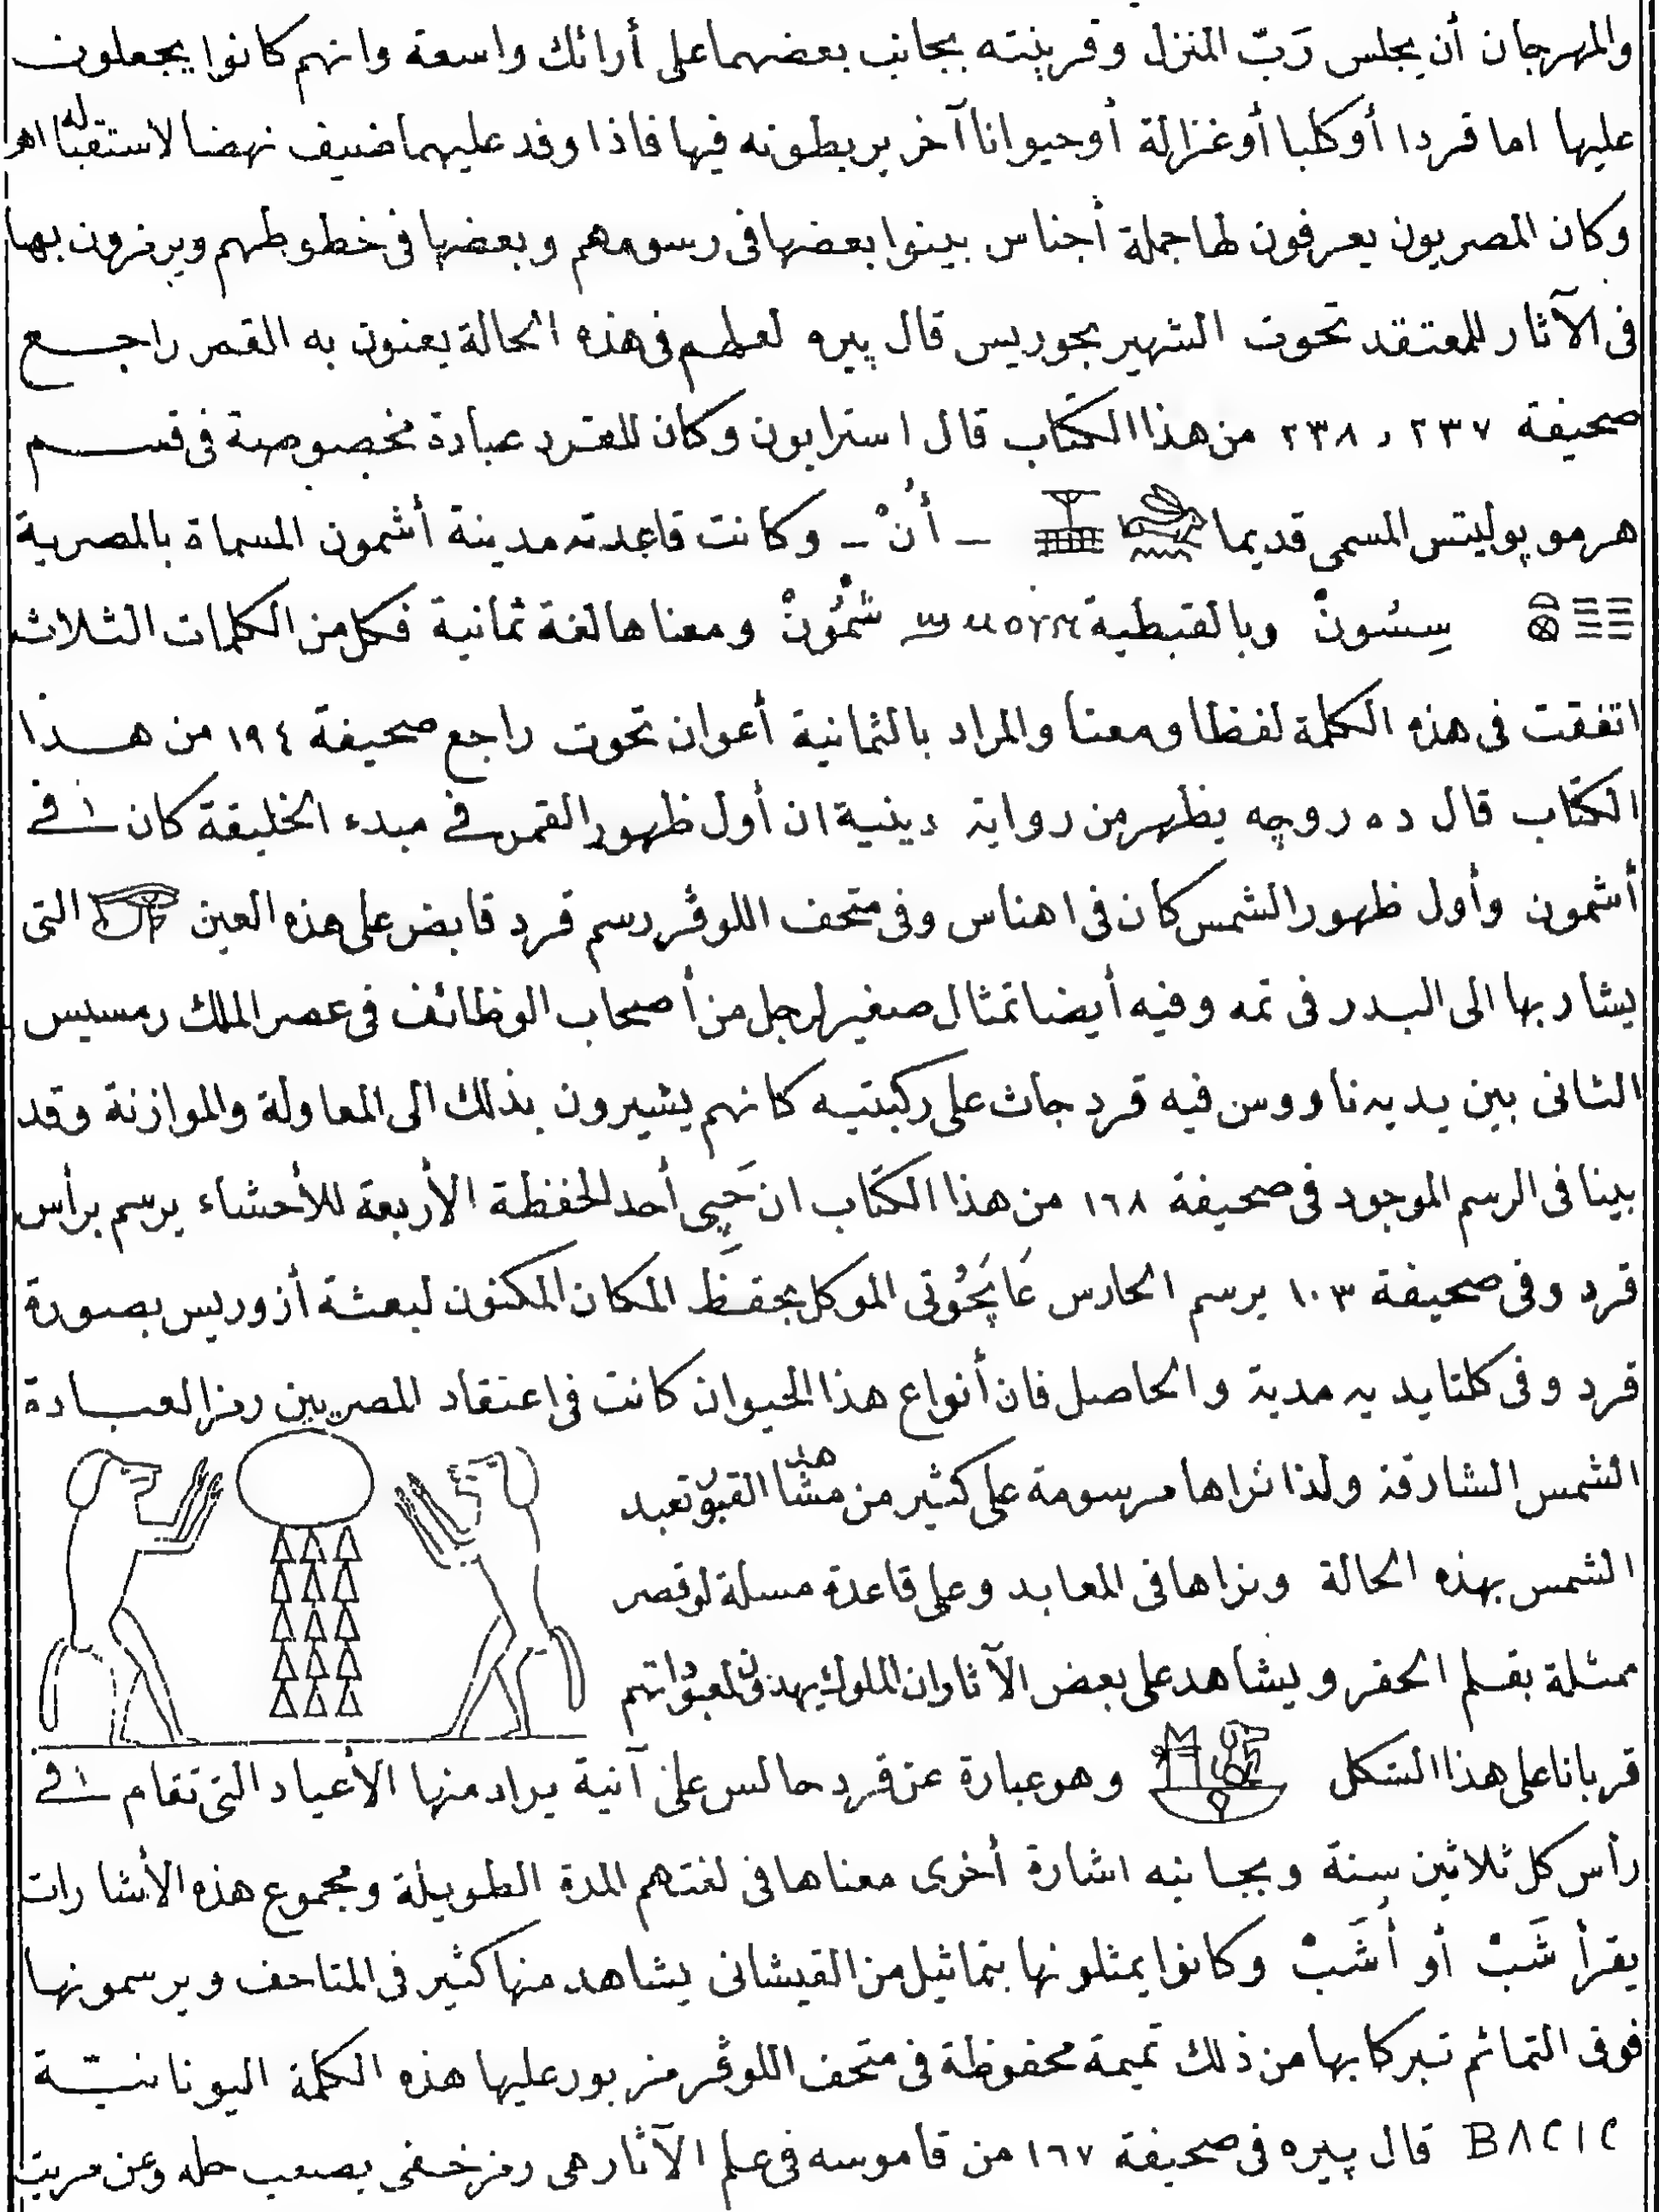 والمهرجان أن يجلس رَبّ المنزل وقرينته بجانب بعضهما على أرائك واسعة وانهم كانوا يجعلون
عليها اما قردا أو كلبا أو غزالة أو حيوانا آخر يربطونه فيها فاذا وفد عليهما ضيف نهضا لاستقباله اهر
وكان المصريون يعرفون لها جملة أجناس بينوا بعضها فى رسومهم وبعضها فى خطوطهم ويرمزون بها
فى الآثار للمعتقد تحوت الشهير بجوريس قال پيره لعلهم فى هذه الحالة يعنون به القمر راجع
صحيفة ٢٣٧ و ٢٣٨ من هذا الكتاب قال استرابون وكان للقرد عبادة مخصوصة فى قسم
هرموپوليتس المسمى قديما ـ أُنْ ـ وكانت قاعدته مدينة أشمون المسماة بالمصرية
سِسُونْ وبالقبطية ϣⲙⲟⲩⲛ شْمُونْ ومعناها لغة ثمانية فكل من الكلمات الثلاثه
اتفقت فى هذه الكلمة لفظا ومعنا والمراد بالثمانية أعوان تحوت راجع صحيفة ١٩٤ من هذا
الكتاب قال ده روچه يظهر من رواية دينية ان أول ظهور القمر فى مبدء الخليقة كان فى
أشمون وأول ظهور الشمس كان فى اهناس وفى متحف اللوڤر رسم قرد قابض على هذه العين التى
يشار بها الى البدر فى تمه وفيه أيضا تمثال صغير لرجل من أصحاب الوظائف فى عصر الملك رمسيس
الثانى بين يديه ناووس فيه قرد جاث على ركبتيه كانهم يشيرون بذلك الى المعاولة والموازنة وقد
بينا فى الرسم الموجود فى صحيفة ١٦٨ من هذا الكتاب ان حَپِى أحد الحفظة الأربعة للأحشاء يرسم برأس
قرد وفى صحيفة ١٠٣ يرسم الحارس عَاپَحُوتى الموكل بحفظ المكان المكنون لبعثة أزوريس بصورة
قرد وفى كلتا يديه مدية والحاصل فان أنواع هذا الحيوان كانت فى اعتقاد المصريين رمز العبادة
الشمس الشارقة ولذا نراها مرسومة على كثير من مشاهد القبور تعبد
الشمس بهذه الحالة ونراها فى المعابد وعلى قاعدة مسلة لوقصر
ممثلة بقلم الحفر ويشاهد على بعض الآثار ان الملوك يهدون لمعبوداتهم
قربانا على هذا الشكل وهو عبارة عن قرد جالس على آنية يراد منها الأعياد التى تقام فى
رأس كل ثلاثين سنة وبجانبه اشارة أخرى معناها فى لغتهم المدة الطويلة ومجموع هذه الأشارات
يقرأ شَبْ أو أُشَبْ وكانوا يمثلونها بتماثيل من القيشانى يشاهد منها كثير فى المتاحف ويرسمونها
فوق التمائم تبركا بها من ذلك تميمة محفوظة فى متحف اللوڤر مزبور عليها هذه الكلمة اليونانيّة
ΒΛCΙC قال پيره فى صحيفة ١٦٧ من قاموسه فى علم الآثار هى رمز خفى يصعب حله وعن مريت